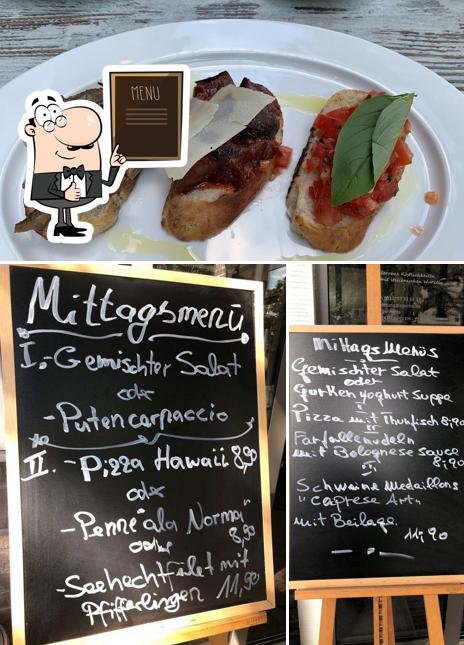 MENU
Mittagsmenü
I.- Gemischter Salat
oder
- Putencarpaccio
II. - Pizza Hawaii 8,90
oder
- Penne "ala Norma"
8,90
oder
- Seehechtfilet mit
Pfifferlingen 11,90
Mittags Menüs
Gemischter Salat
oder
Gurken yoghurt suppe
Pizza mit Thunfisch 8,90
Farfallenudeln
mit Bolognese sauce
8,90
Schweine Medaillons
"Caprese Art"
mit Beilage
11,90